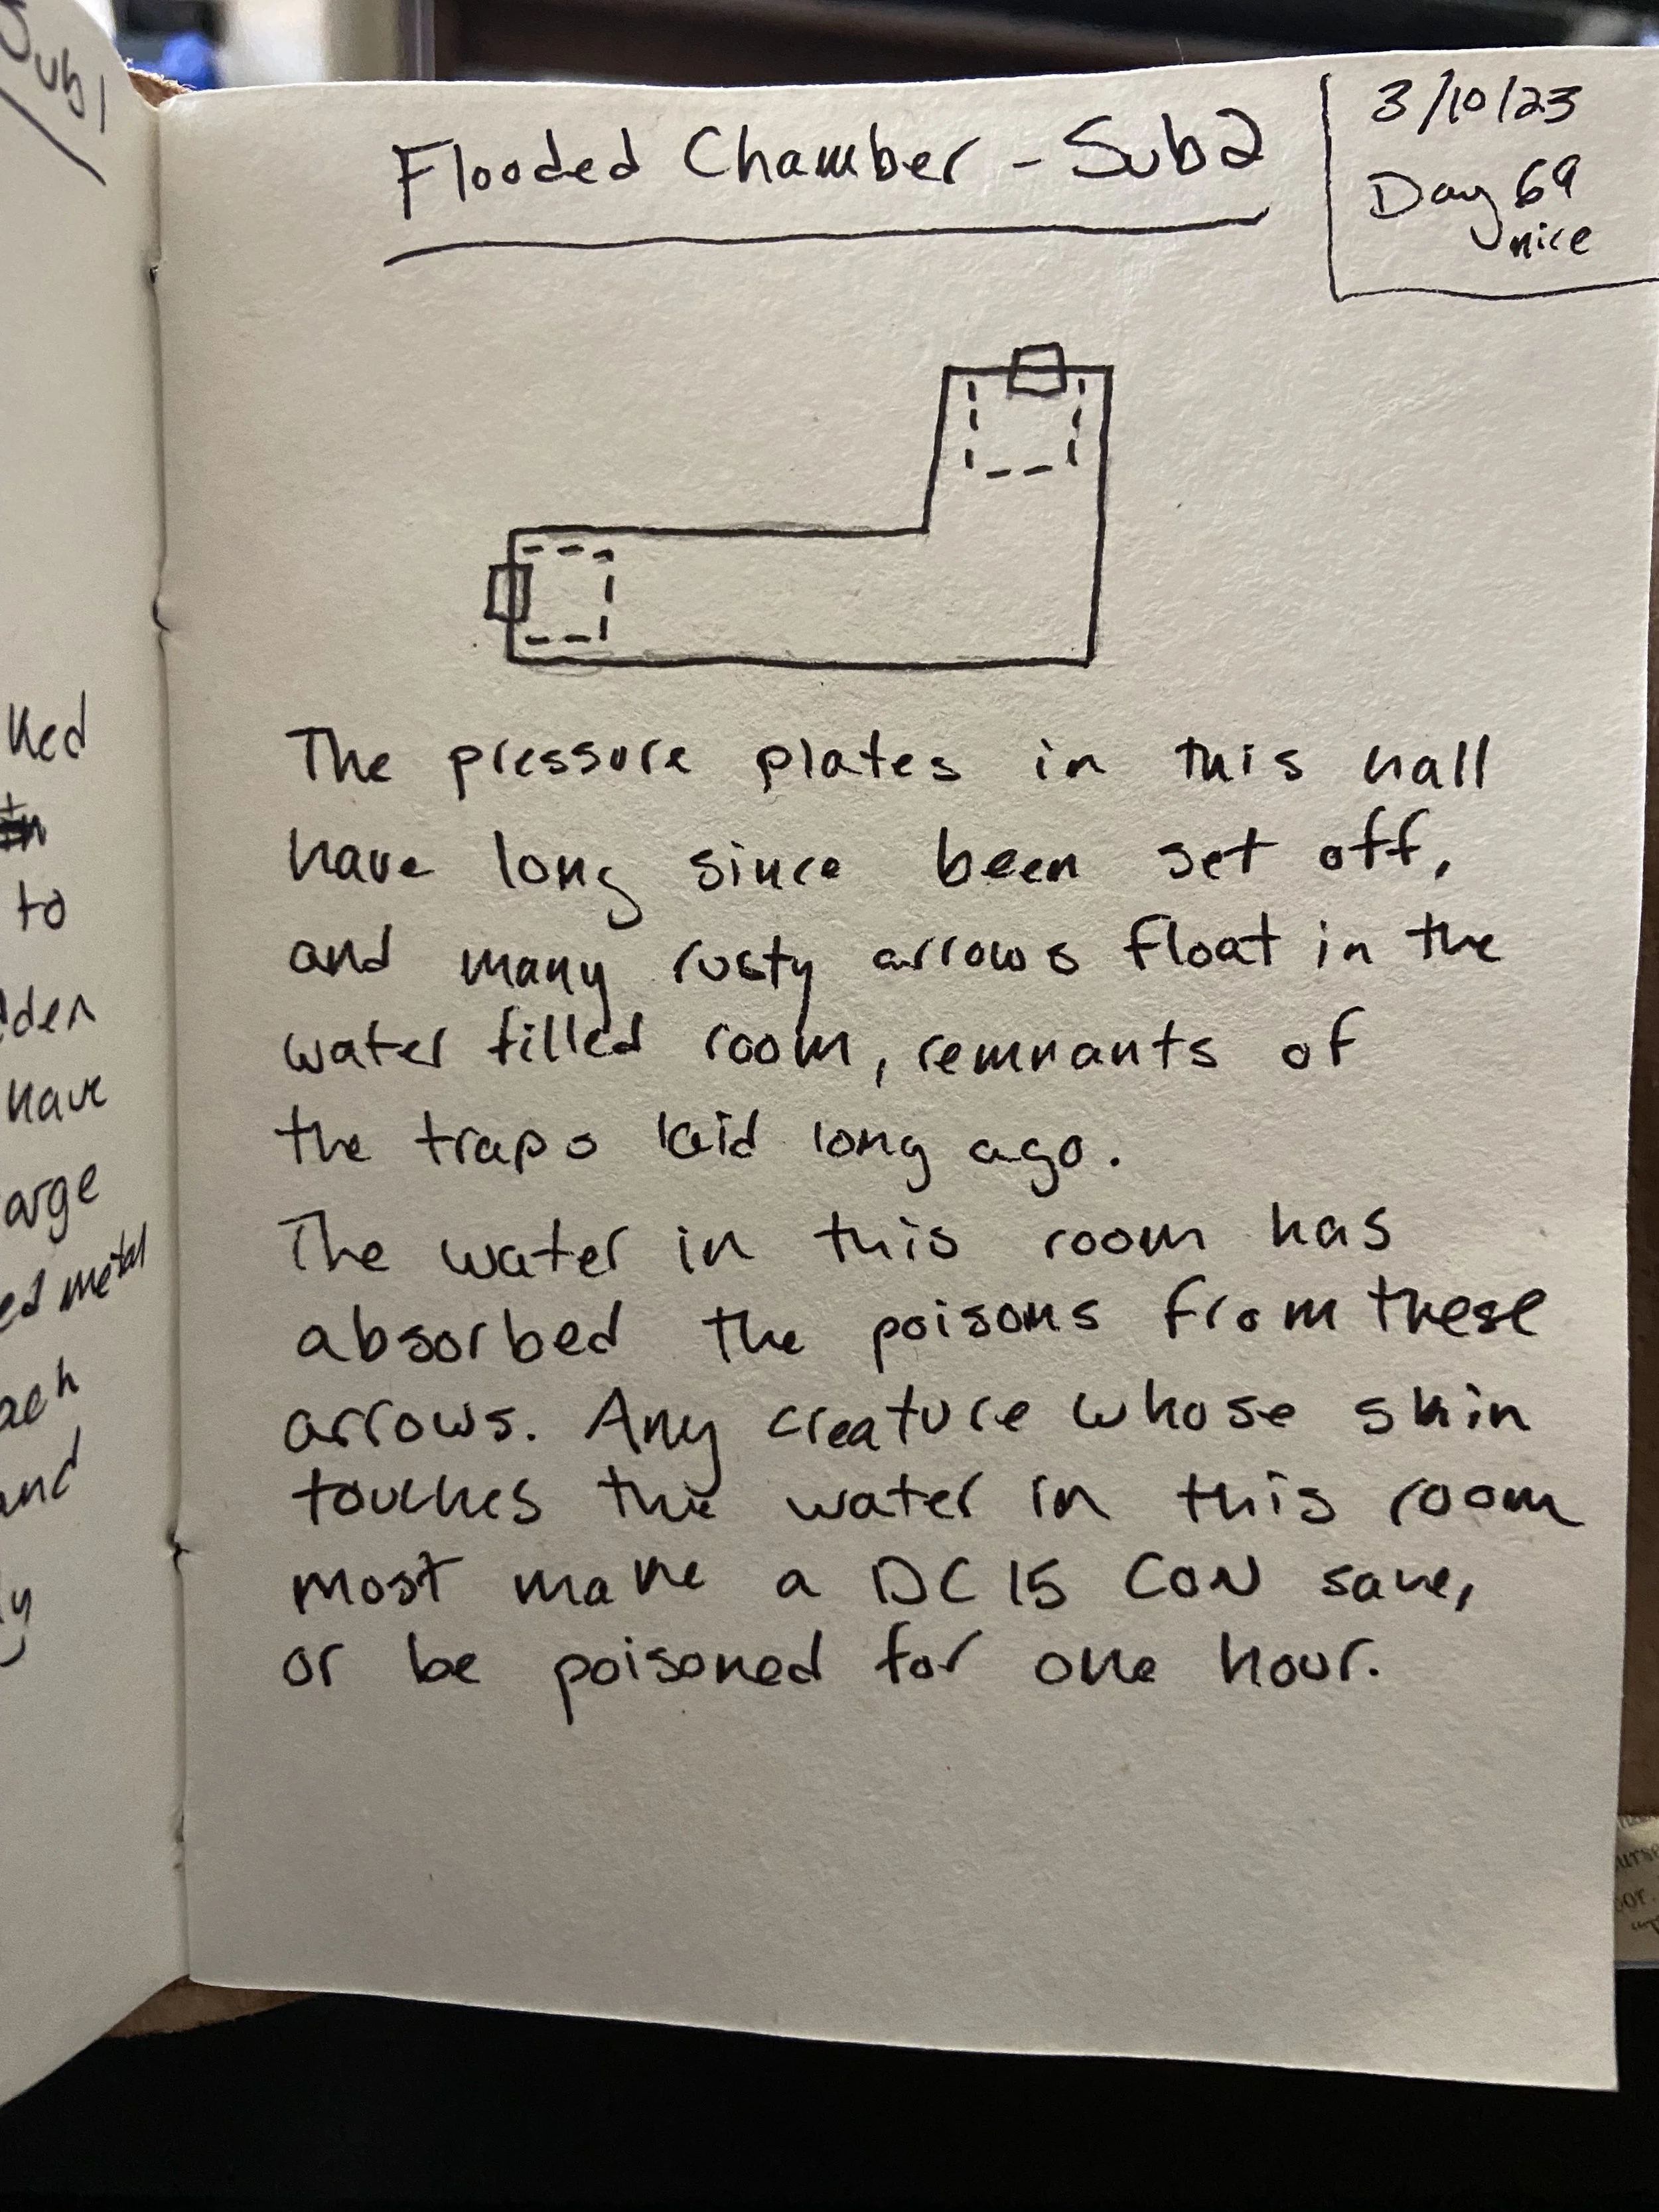 Sub1
Flooded Chamber - Sub2
3/10/23
Day 69
nice
ked
in
to
dden
have
arge
ed metal
ach
and
ly
The pressure plates in this hall
have long since been set off,
and many rusty arrows float in the
water filled room, remnants of
the traps laid long ago.
The water in this room has
absorbed the poisons from these
arrows. Any creature whose skin
touches the water in this room
most make a DC 15 CON save,
or be poisoned for one hour.